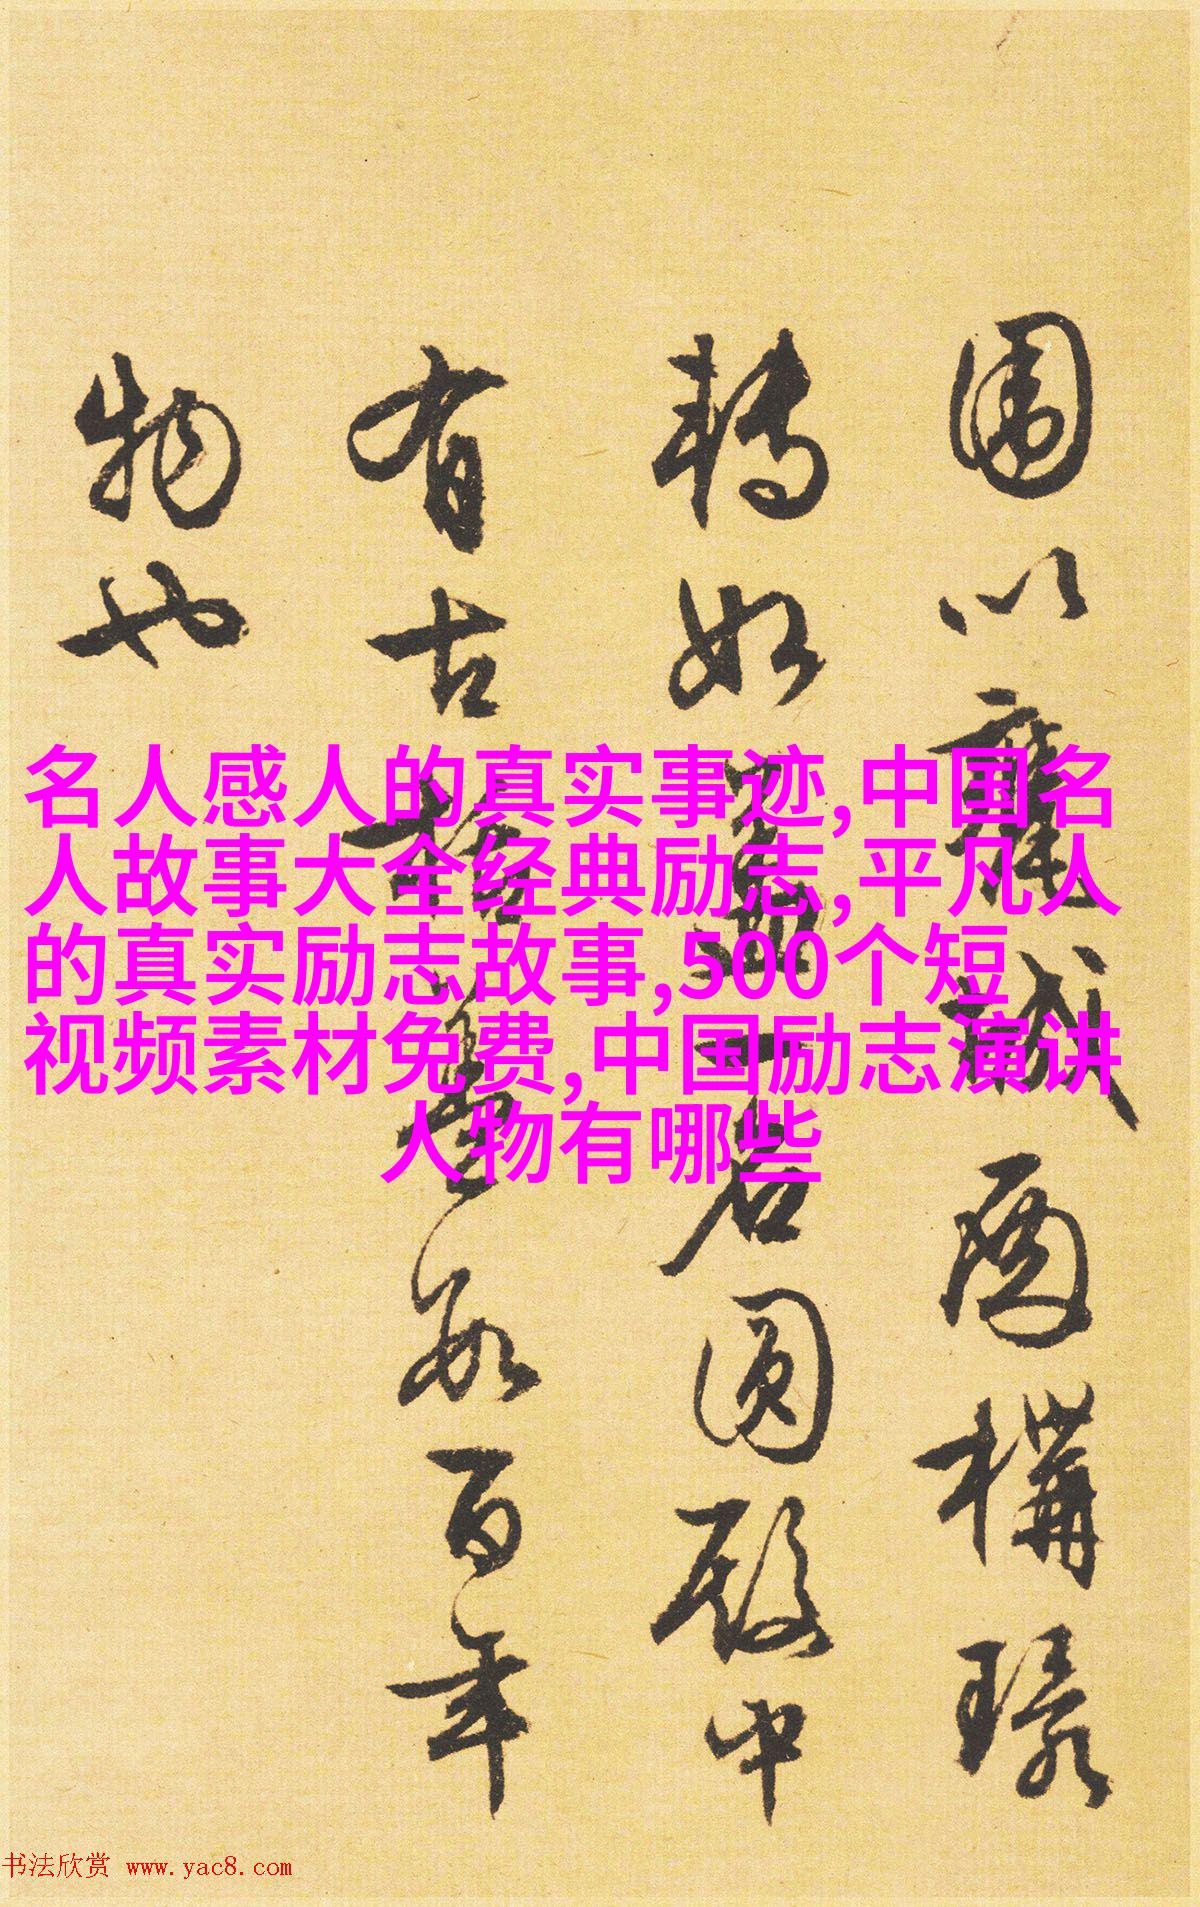 围以甕城而構環
轉如盖一名圆殿中
有古栝丨年
物也
名人感人的真实事迹,中国名
人故事大全经典励志,平凡人
的真实励志故事,500个短
视频素材免费,中国励志演讲
人物有哪些
书法欣赏 www.yac8.com